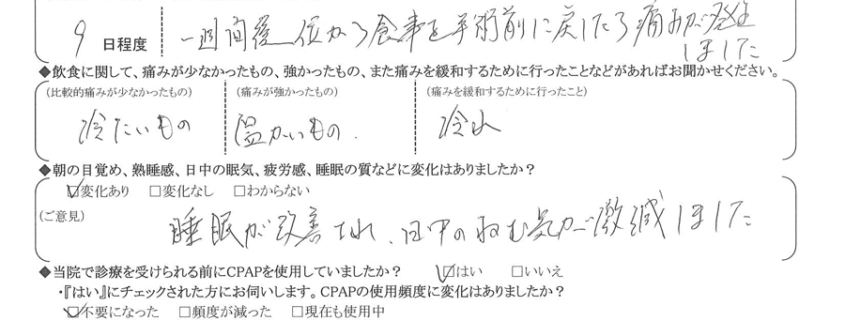 9 日程度 一週間後位から食事を手術前に戻したら痛みが発生
しました
◆飲食に関して、痛みが少なかったもの、強かったもの、また痛みを緩和するために行ったことなどがあればお聞かせください。
(比較的痛みが少なかったもの) (痛みが強かったもの) (痛みを緩和するために行ったこと)
冷たいもの 温かいもの. 冷水
◆朝の目覚め、熟睡感、日中の眠気、疲労感、睡眠の質などに変化はありましたか？
☑変化あり □変化なし □わからない
(ご意見)
睡眠が改善され、日中のねむ気が激減しました
◆当院で診療を受けられる前にCPAPを使用していましたか？ ☑はい □いいえ
・『はい』にチェックされた方にお伺いします。CPAPの使用頻度に変化はありましたか？
☑不要になった □頻度が減った □現在も使用中